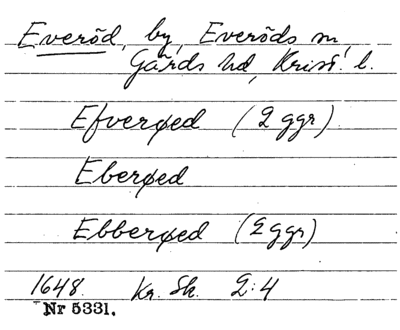 Everöd, by, Everöds sn,
Gärds hd, Krist. l.
Efverøed (2 ggr)
Eberøed
Ebberøed (2 ggr)
1648. Kr. Sk. 2:4
Nr 5331.